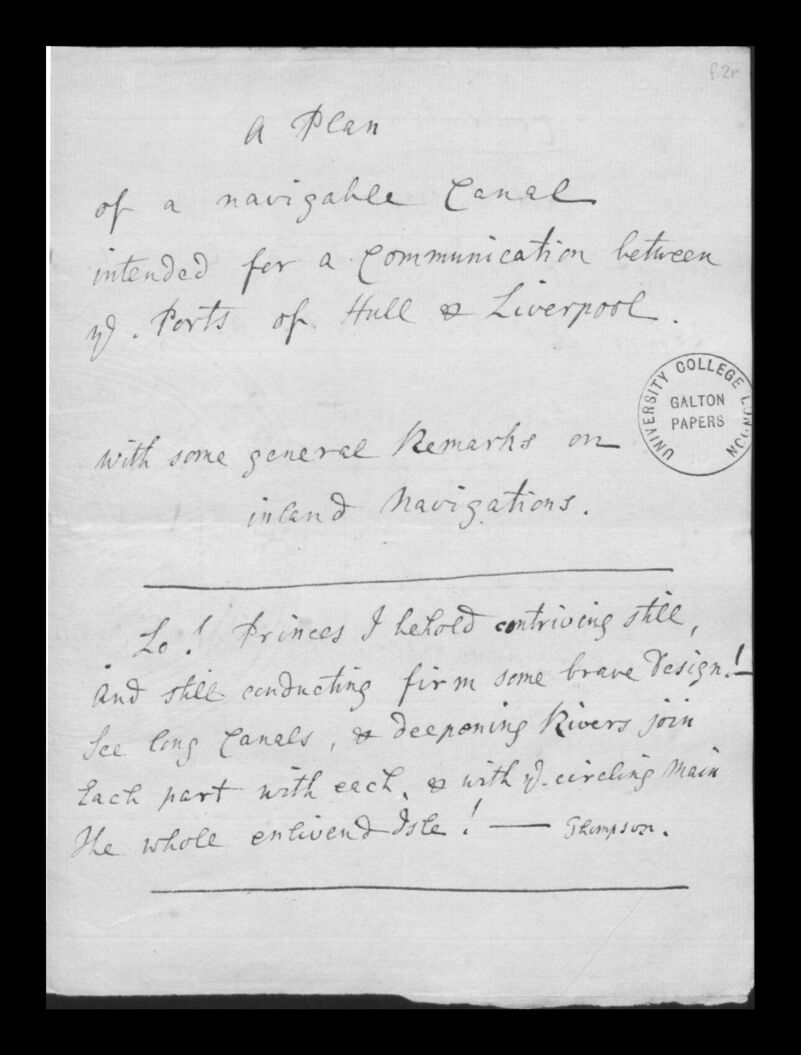 f.2r
A Plan
of a navigable Canal
intended for a Communication between
yͤ. Ports of Hull & Liverpool.
UNIVERSITY COLLEGE LONDON
GALTON
PAPERS
with some general Remarks on
inland Navigations.
Lo! Princes I behold contriving still,
And still conducting firm some brave Design!—
See long Canals, & deepening Rivers join
Each part with each, & with yͤ. circling Main
The whole enlivend Isle! — Thompson.